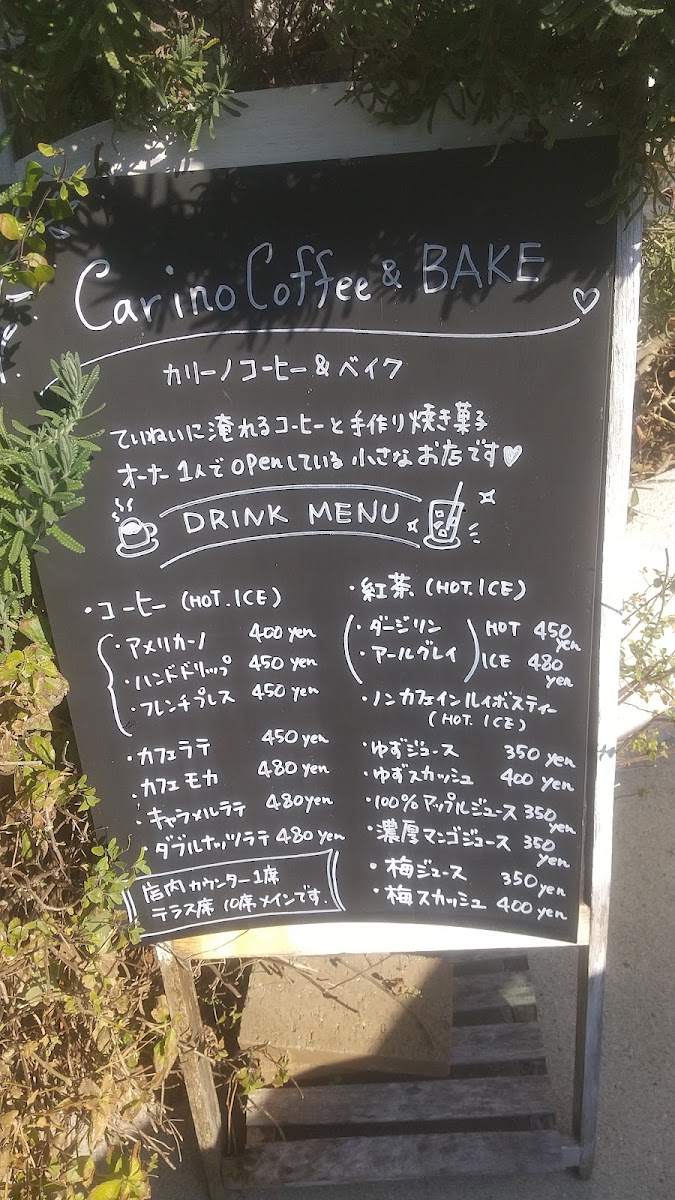 Carino Coffee & BAKE
カリーノコーヒー & ベイク
ていねいに淹れるコーヒーと手作り焼き菓子
オーナー1人でopenしている小さなお店です♡
DRINK MENU
・コーヒー (HOT. ICE)
・アメリカーノ 400 yen
・ハンドドリップ 450 yen
・フレンチプレス 450 yen
・カフェラテ 450 yen
・カフェモカ 480 yen
・キャラメルラテ 480 yen
・ダブルナッツラテ 480 yen
店内カウンター1席
テラス席 10席メインです.
・紅茶 (HOT. ICE)
・ダージリン HOT 450 yen
・アールグレイ ICE 480 yen
・ノンカフェインルイボスティー
(HOT. ICE)
・ゆずジュース 350 yen
・ゆずスカッシュ 400 yen
・100%アップルジュース 350 yen
・濃厚マンゴジュース 350 yen
・梅ジュース 350 yen
・梅スカッシュ 400 yen